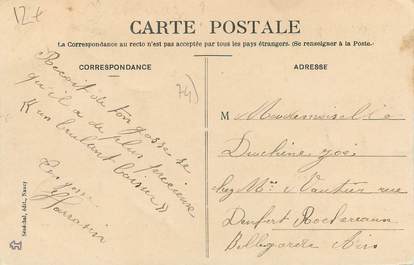 12+
CARTE POSTALE
La Correspondance au recto n'est pas acceptée par tous les pays étrangers. (Se renseigner à la Poste.)
CORRESPONDANCE
ADRESSE
(74)
Reçoit de ton gosse ce
qu'il a de plus précieux
« un brulant baiser »
Ton gosse
M Mademoiselle
Duchêne
chez Mme Vautier rue
Denfert Rochereau
Bellegarde Ain
Sénéchal, édit., Nancy